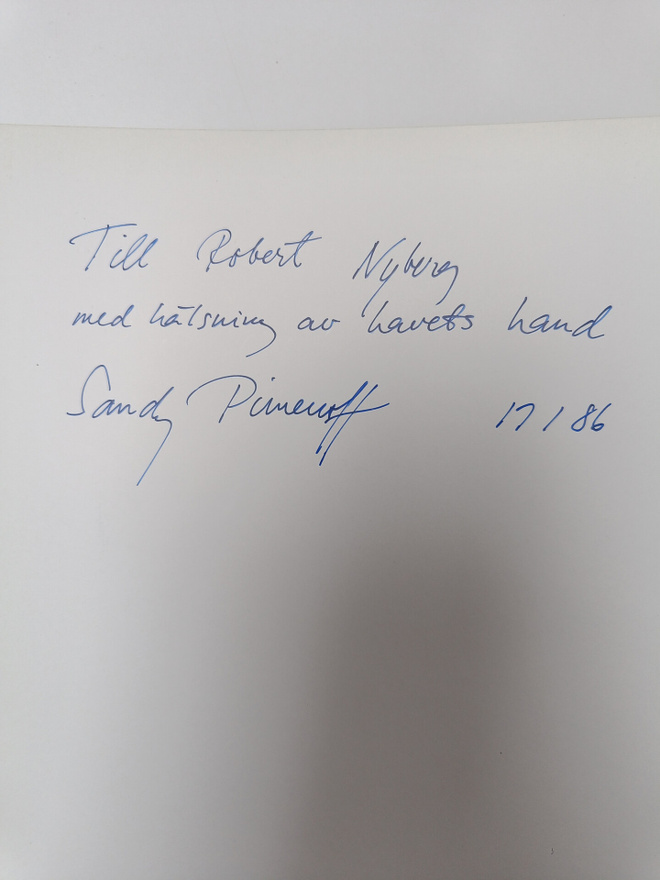 Till Robert Nyberg
med hälsning av havets hand
Sandy Pimenoff 17 1 86